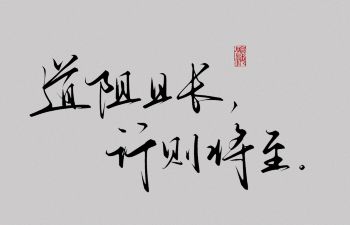 道阻且长，
行则将至。